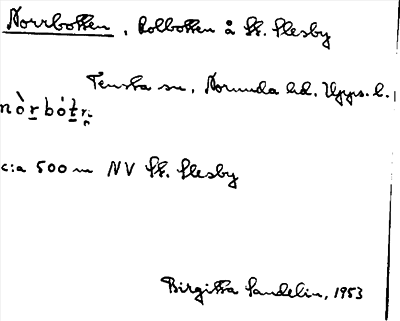 Norrbotten, Rolbotten å St. Ilesby
Tensta sn, Norunda hd. Upps. l.
nòrbótṇ
c:a 500 m NV St. Ilesby
Birgitta Sandelin, 1953